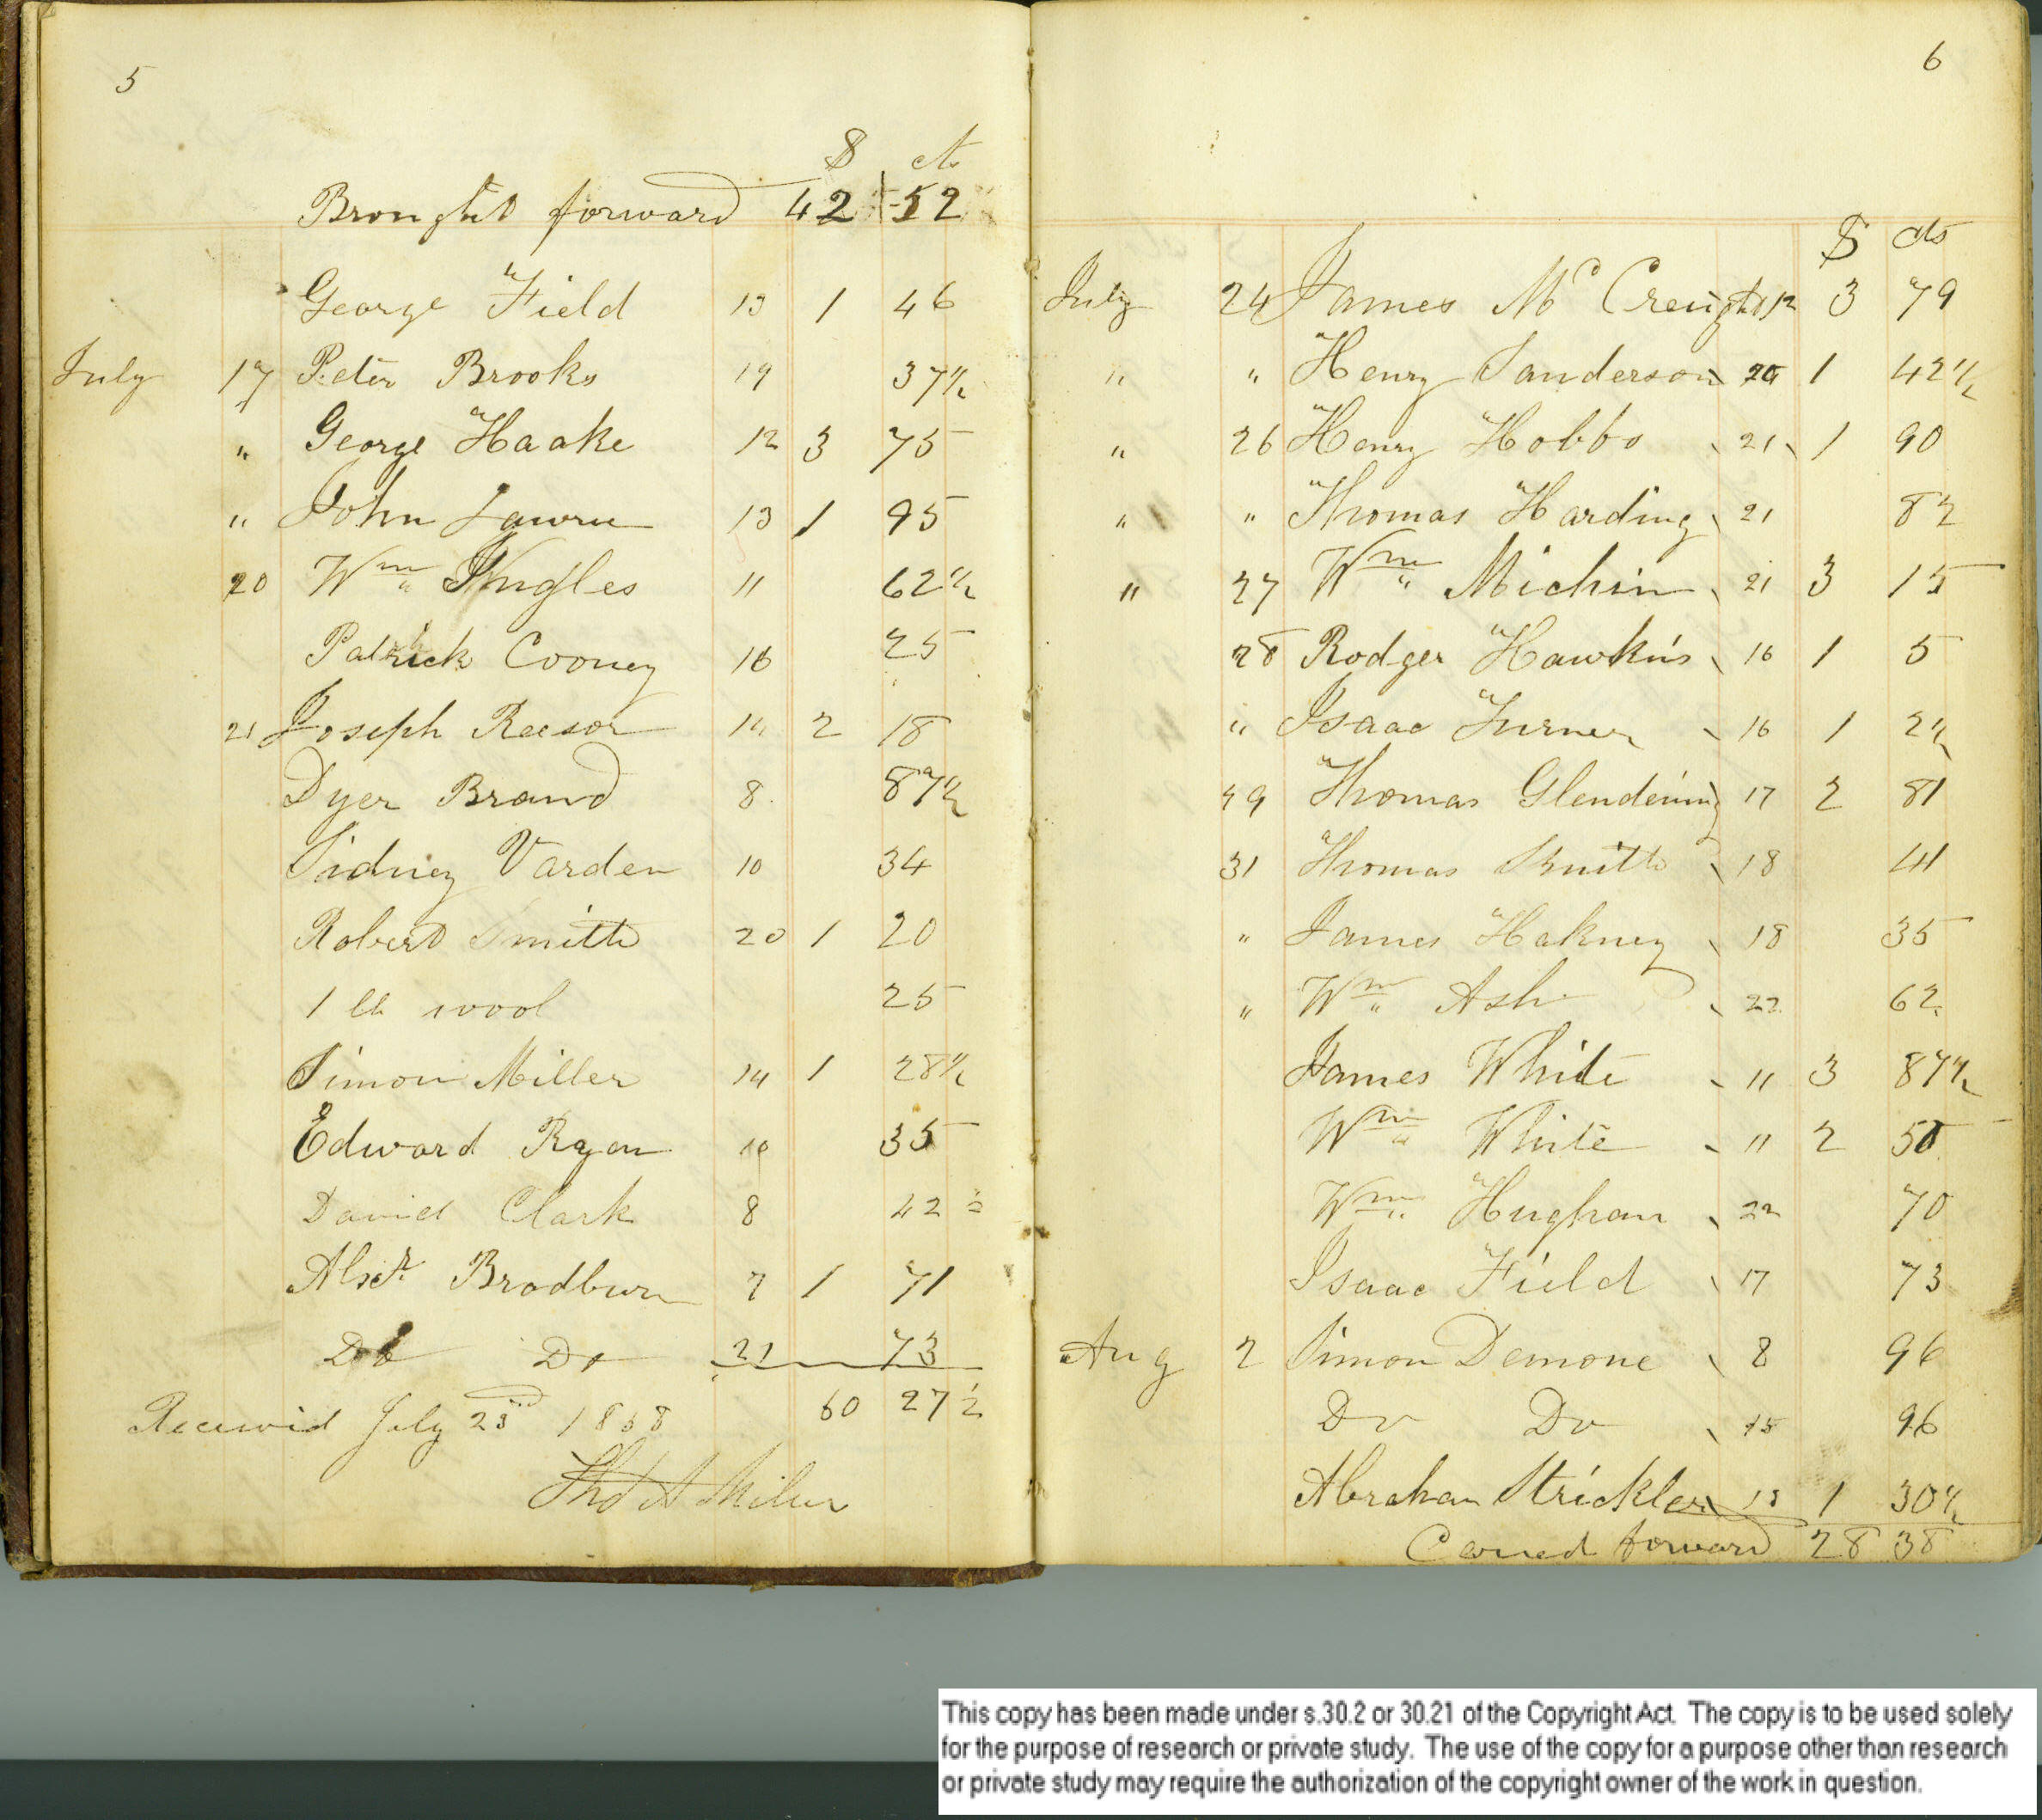 5
$ cts
Brought forward 42 52
George Field 13 1 46
July 17 Peter Brooks 19 37½
" George Haake 12 3 75
" John Lawrie 13 1 95
20 Wm Hugles 11 62½
Patrick Cooney 16 25
21 Joseph Reesor 14 2 18
Dyer Brand 8 87½
Sidney Varden 10 34
Robert Smith 20 1 20
1 lb wool 25
Simon Miller 14 1 28½
Edward Ryan 10 35
David Clark 8 42½
Alexr Bradburn 7 1 71
Do Do 21 73
60 27½
Received July 23rd 1858
Thos A Milne
6
$ cts
July 24 James McCreight 12 3 79
" " Henry Sanderson 20 1 42½
" 26 Henry Hobbs 21 1 90
" " Thomas Harding 21 82
" 27 Wm Michin 21 3 15
28 Rodger Hawkins 16 1 5
" Isaac Turner 16 1 2½
29 Thomas Glendening 17 2 81
31 Thomas Smith 18 41
" James Hakney 18 35
" Wm Ash 22 62
James White 11 3 87½
Wm White 11 2 50
Wm Hughan 22 70
Isaac Field 17 73
Aug 2 Simon Demone 8 96
Do Do 15 96
Abraham Strickler 13 1 30½
Carried forward 28 38
This copy has been made under s.30.2 or 30.21 of the Copyright Act. The copy is to be used solely
for the purpose of research or private study. The use of the copy for a purpose other than research
or private study may require the authorization of the copyright owner of the work in question.